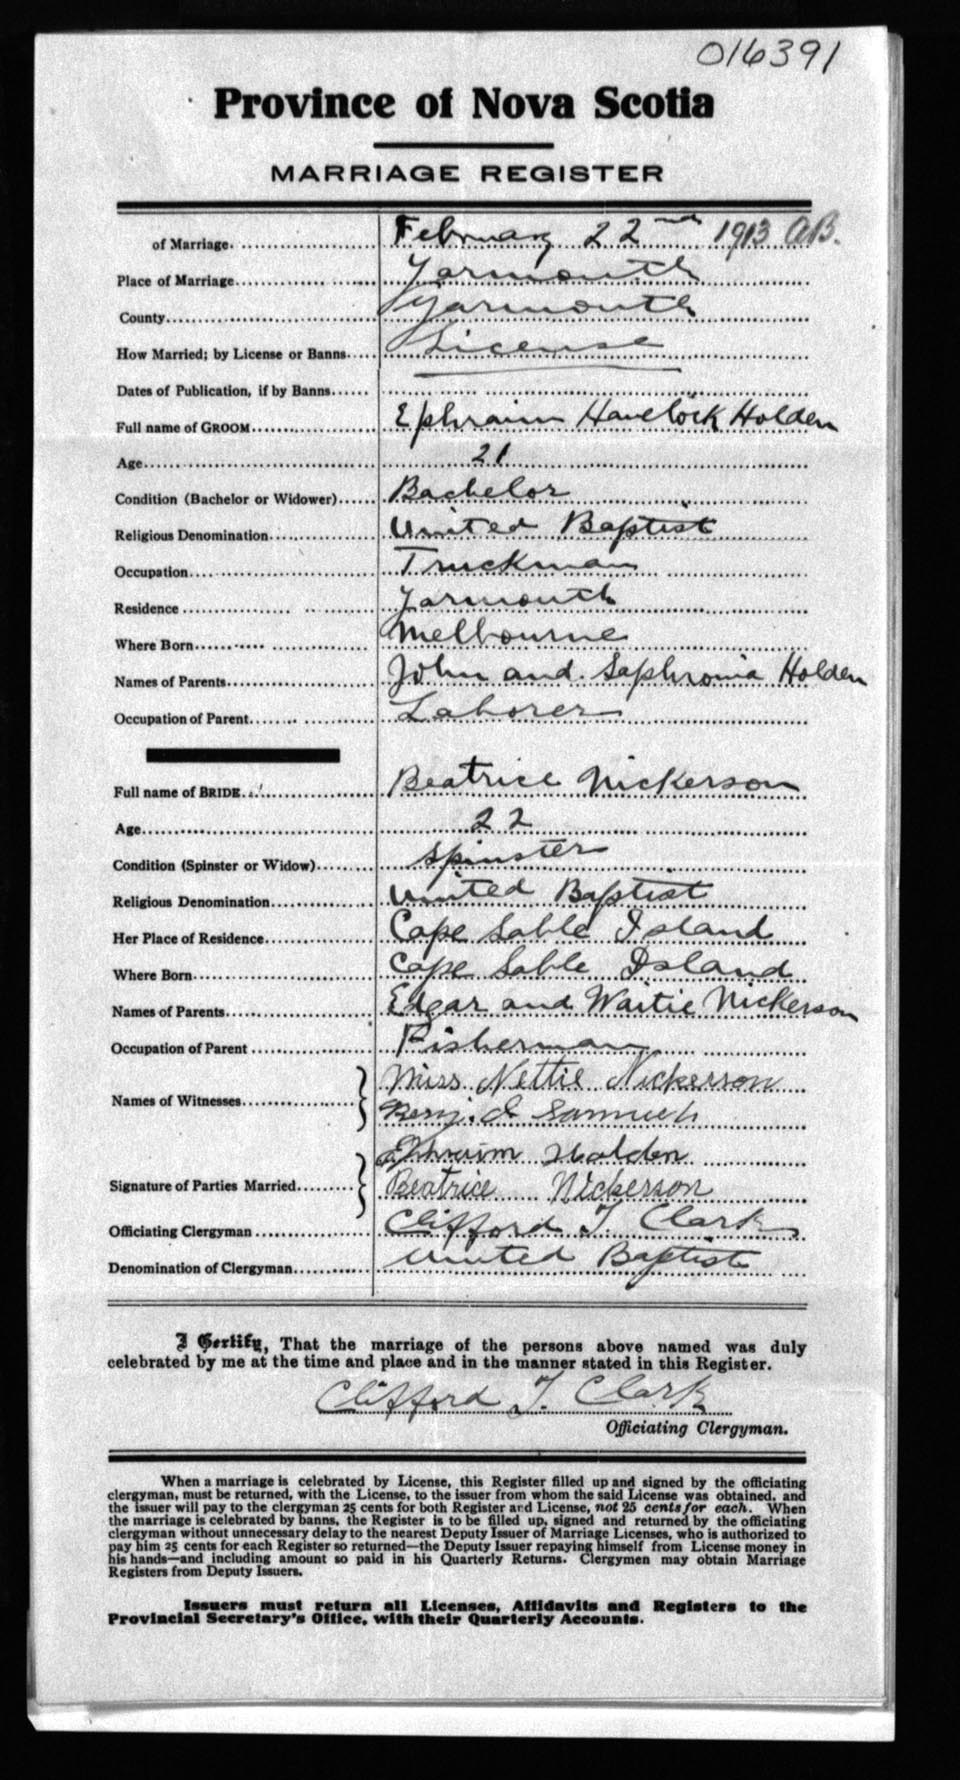 016391
Province of Nova Scotia
MARRIAGE REGISTER
of Marriage. February 22nd 1913 A.B.
Place of Marriage Yarmouth
County Yarmouth
How Married; by License or Banns License
Dates of Publication, if by Banns
Full name of GROOM Ephraim Havelock Holden
Age 21
Condition (Bachelor or Widower) Bachelor
Religious Denomination United Baptist
Occupation Truckman
Residence Yarmouth
Where Born Melbourne
Names of Parents John and Saphronia Holden
Occupation of Parent Laborer
Full name of BRIDE Beatrice Nickerson
Age 22
Condition (Spinster or Widow) Spinster
Religious Denomination United Baptist
Her Place of Residence Cape Sable Island
Where Born Cape Sable Island
Names of Parents Edgar and Waitie Nickerson
Occupation of Parent Fisherman
Names of Witnesses Miss Nettie Nickerson
Benj.
Signature of Parties Married Ephraim Holden
Beatrice Nickerson
Officiating Clergyman Clifford T. Clark
Denomination of Clergyman United Baptist
I Certify, That the marriage of the persons above named was duly
celebrated by me at the time and place and in the manner stated in this Register.
Clifford T. Clark
Officiating Clergyman.
When a marriage is celebrated by License, this Register filled up and signed by the officiating
clergyman, must be returned, with the License, to the issuer from whom the said License was obtained, and
the issuer will pay to the clergyman 25 cents for both Register and License, not 25 cents for each. When
the marriage is celebrated by banns, the Register is to be filled up, signed and returned by the officiating
clergyman without unnecessary delay to the nearest Deputy Issuer of Marriage Licenses, who is authorized to
pay him 25 cents for each Register so returned—the Deputy Issuer repaying himself from License money in
his hands—and including amount so paid in his Quarterly Returns. Clergymen may obtain Marriage
Registers from Deputy Issuers.
Issuers must return all Licenses, Affidavits and Registers to the
Provincial Secretary's Office, with their Quarterly Accounts.